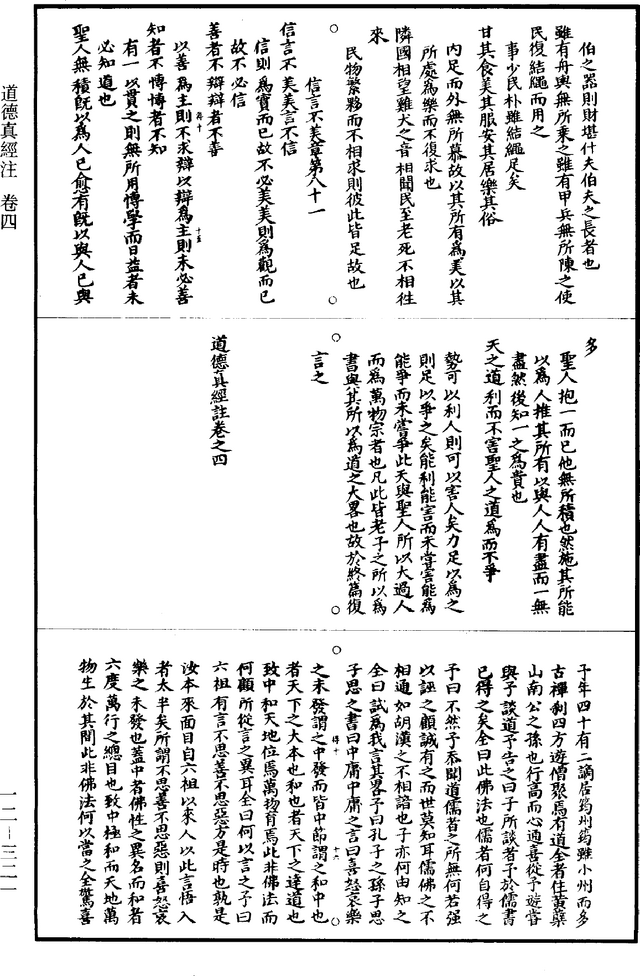 道德真經注 卷四
伯之器則財堪什夫伯夫之長者也
雖有舟輿無所乘之雖有甲兵無所陳之使
民復結繩而用之
事少民朴雖結繩足矣
甘其食美其服安其居樂其俗
內足而外無所慕故以其所有為美以其
所處為樂而不復求也
隣國相望雞犬之音相聞民至老死不相徃
來
民物繁夥而不相求則彼此皆足故也
信言不美章第八十一
信言不美美言不信
信則為實而已故不必美美則為觀而已
故不必信
善者不辯辯者不善
以善為主則不求辯以辯為主則未必善
知者不博博者不知
有一以貫之則無所用博學而日益者未
必知道也
聖人無積旣以為人已愈有旣以與人已與
多
聖人抱一而已他無所積也然施其所能
以為人推其所有以與人人有盡而一無
盡然後知一之為貴也
天之道利而不害聖人之道為而不爭
勢可以利人則可以害人矣力足以為之
則足以爭之矣能利能害而未甞害能為
能爭而未嘗爭此天與聖人所以大過人
而為萬物宗者也凡此皆老子之所以為
書與其所以為道之大畧也故於終篇復
言之
道德真經註卷之四
予年四十有二謫居筠州筠雖小州而多
古禪刹四方遊僧聚焉有道全者住黃蘗
山南公之孫也行高而心通喜從予遊甞
與予談道予告之曰子所談者予於儒書
已得之矣全曰此佛法也儒者何自得之
予曰不然予忝聞道儒者之所無何苦强
以誣之顧誠有之而世莫知耳儒佛之不
相通如胡漢之不相諳也子亦何由知之
全曰試為我言其畧予曰孔子之孫子思
子思之書曰中庸中庸之言曰喜怒哀樂
之未發謂之中發而皆中節謂之和中也
者天下之大本也和也者天下之達道也
致中和天地位焉萬物育焉此非佛法而
何顧所從言之異耳全曰何以言之予曰
六祖有言不思善不思惡方是時也孰是
汝本來面目自六祖以來人以此言悟入
者太半矣所謂不思善不思惡則喜怒哀
樂之未發也蓋中者佛性之異名而和者
六度萬行之總目也致中極和而天地萬
物生於其間此非佛法何以當之全驚喜
一二-三二一